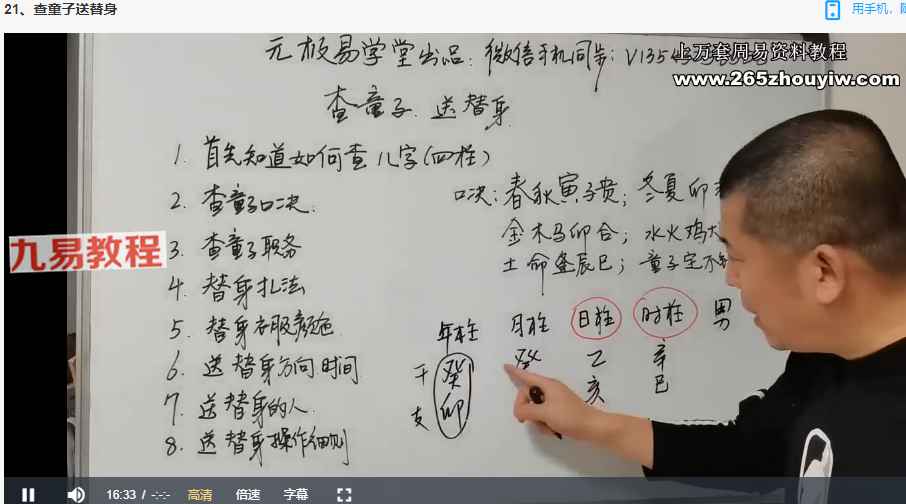 21、查童子送替身
用手机,
上万套周易资料教程
www.265zhouyiw.com
元极易学堂出品:微信手机同步:V1354
查童子.送替身
1. 首先知道如何查八字(四柱)
2. 查童子口决.
3. 查童子职务
4. 替身扎法
5. 替身衣服颜色
6. 送替身方向时间
7. 送替身的人.
8. 送替身操作细则
口决:春秋寅子贵;冬夏卯
金木马卯合;水火鸡犬
土命逢辰巳;童子定不
年柱 月柱 日柱 时柱 男
干 癸 癸 乙 辛
支 卯 亥 巳
九易教程
16:33 / -:-:- 高清 倍速 字幕